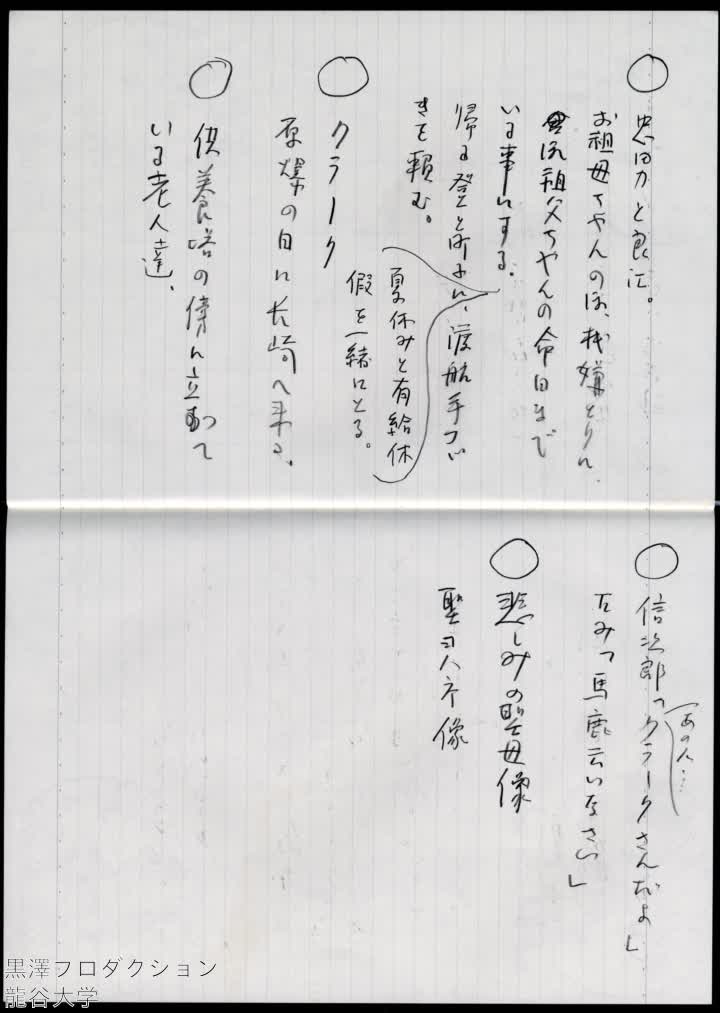 忠男と良江。
お祖母ちゃんのほ、機嫌とりに、
お祖父ちゃんの命日まで
いる事にする。
帰る登と町子に、渡航手つづ
きを頼む。
夏休みと有給休
假を一緒にとる。
クラーク
原爆の日に長崎へ来る、
供養塔の傍に立って
いる老人達、
信次郎「クラークさんだよ」
(あの人…
たみ「馬鹿云いなさい」
悲しみの聖母像
聖ヨハネ像
黒澤プロダクション
龍谷大学